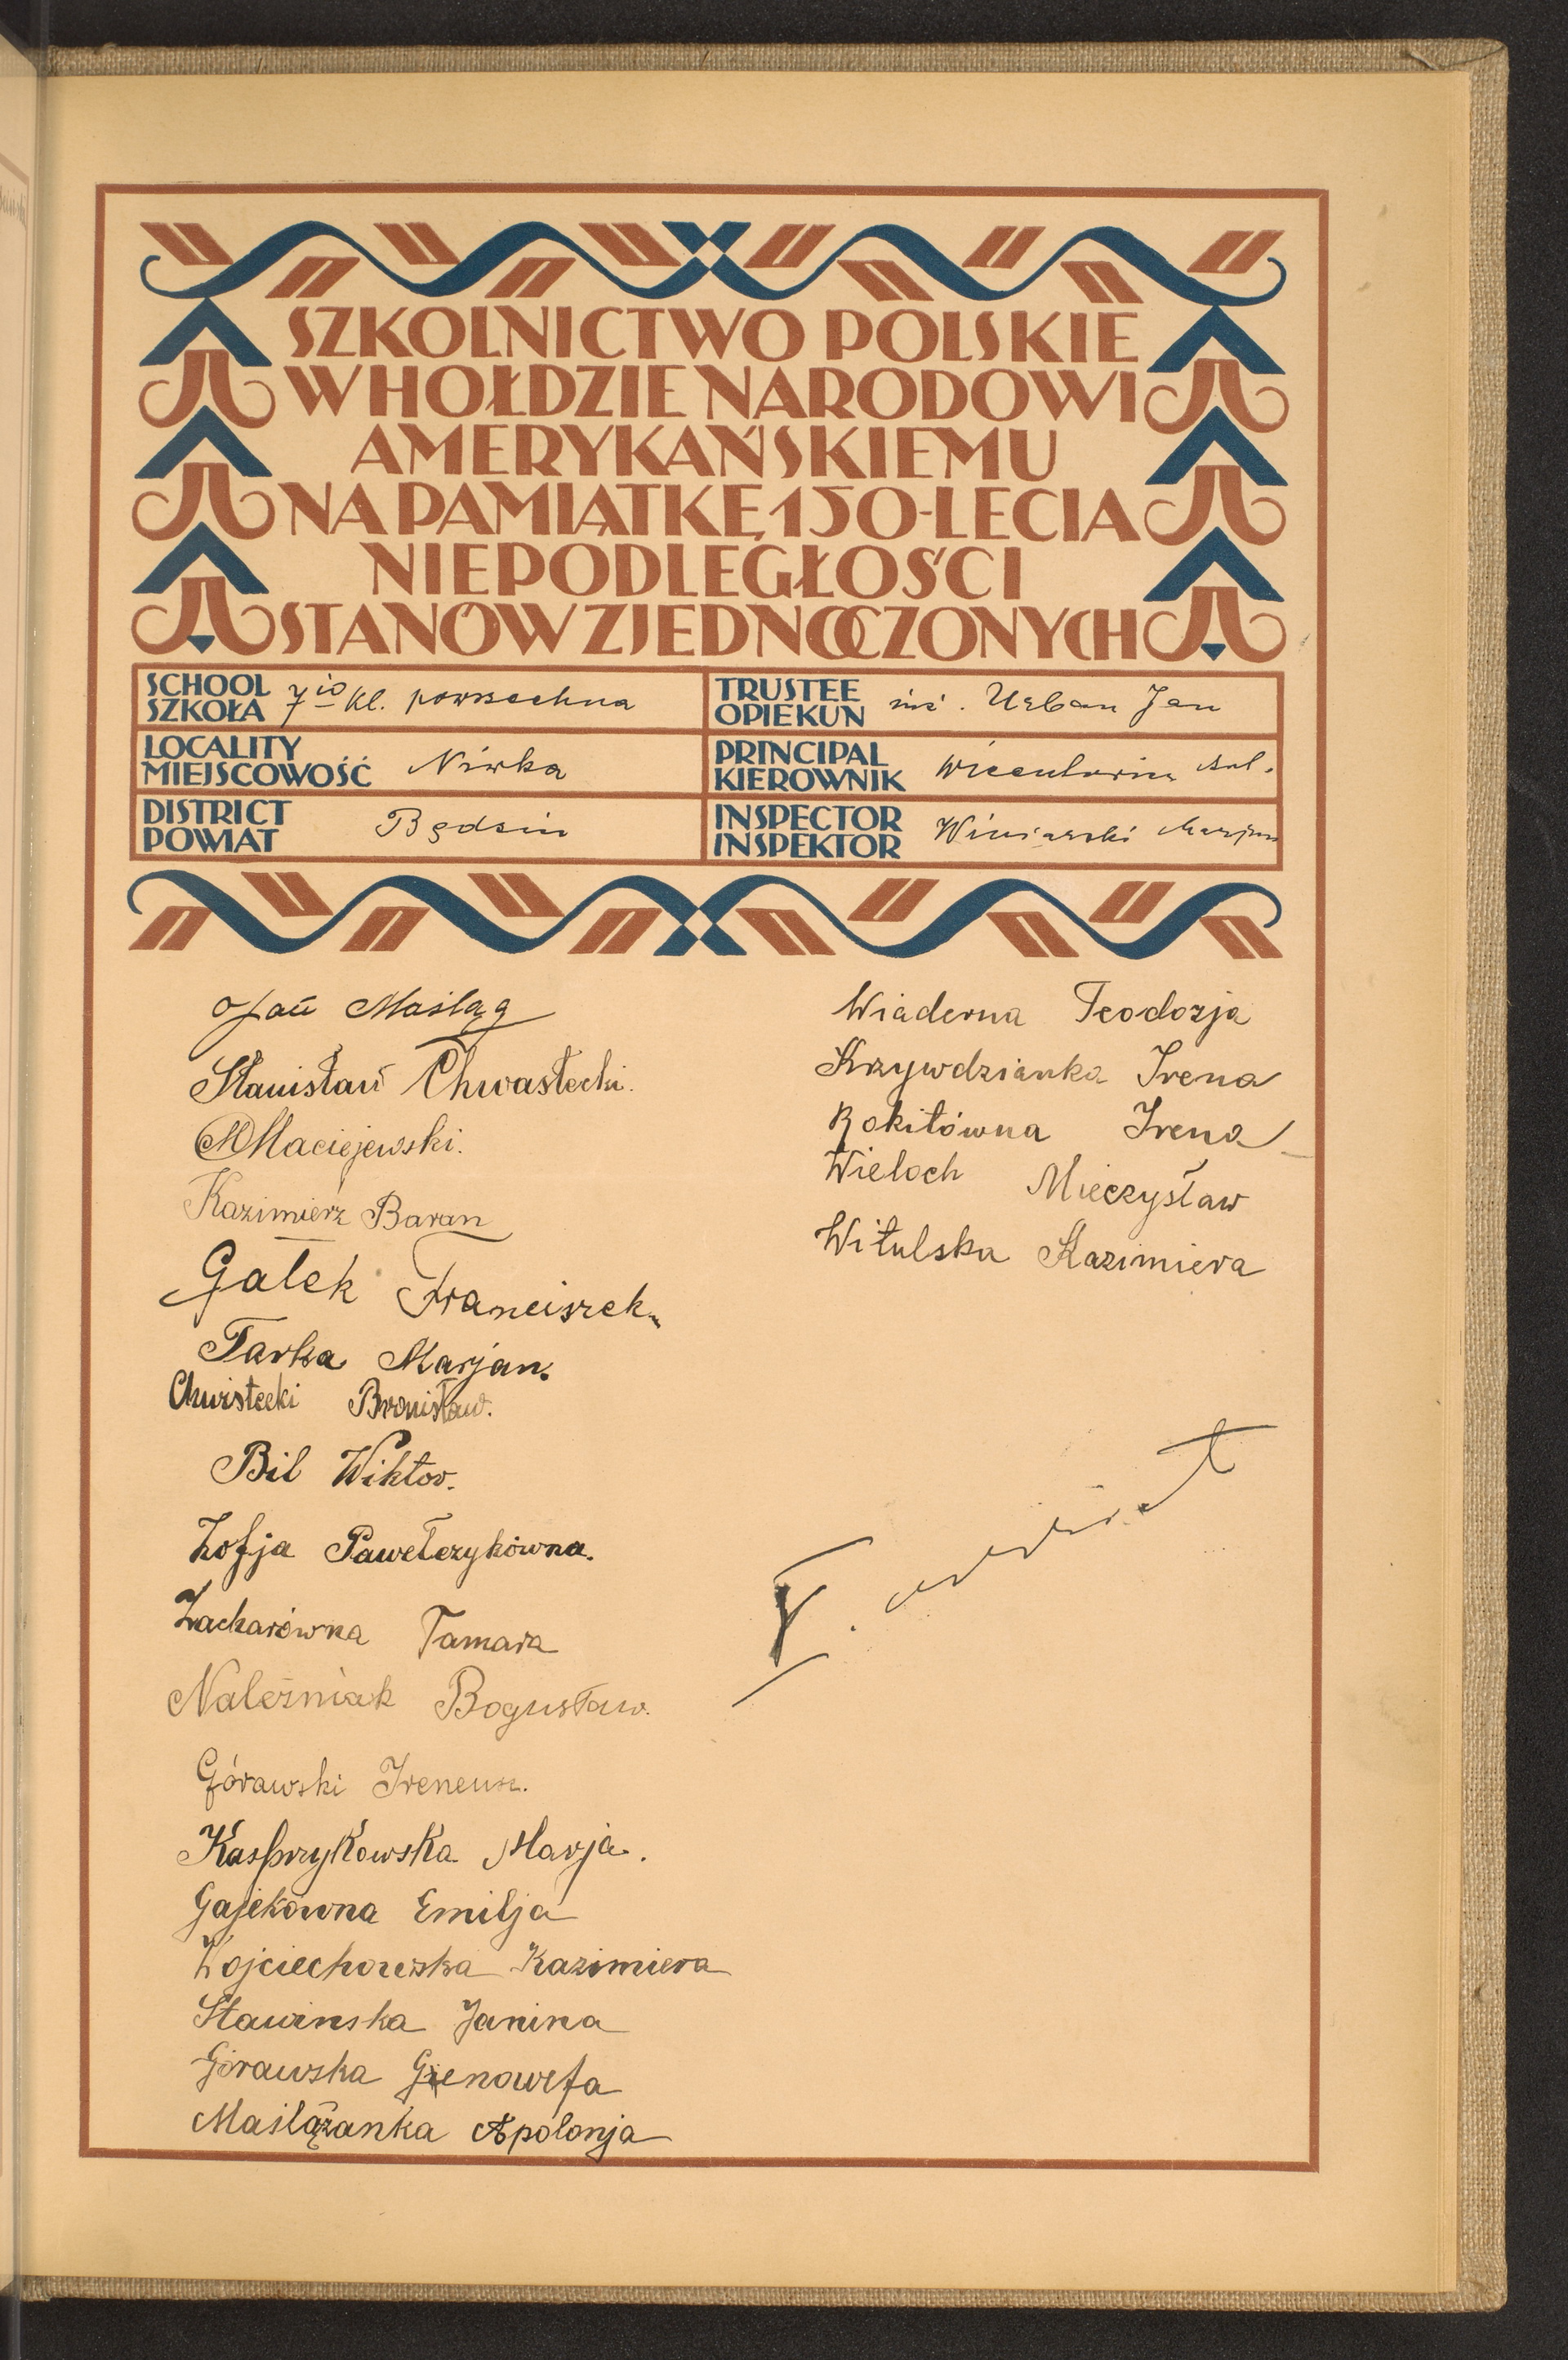 SZKOLNICTWO POLSKIE
W HOŁDZIE NARODOWI
AMERYKAŃSKIEMU
NA PAMIĄTKĘ 150-LECIA
NIEPODLEGŁOŚCI
STANÓW ZJEDNOCZONYCH
SCHOOL
SZKOŁA 7io kl. powszechna
TRUSTEE
OPIEKUN inż. Urban Jan
LOCALITY
MIEJSCOWOŚĆ Niwka
PRINCIPAL
KIEROWNIK
DISTRICT
POWIAT Będzin
INSPECTOR
INSPEKTOR Winiarski Marjan
Jan Maśląg
Stanisław Chwastecki.
MMaciejewski.
Kazimierz Baran
Gałek Franciszek
Tarka Marjan.
Chwistecki Bronisław.
Bil Wiktor.
Zofja Pawełczykówna.
Zacharówna Tamara
Naleźniak Bogusław.
Górawski Ireneusz.
Kasprzykowska Marja.
Gajekówna Emilja
Wojciechowska Kazimiera
Sławinska Janina
Górawska Gienowefa
Maślążanka Apolonja
Wiaderna Teodozja
Krzywdzianka Irena
Rokitówna Irena
Wieloch Mieczysław
Witulska Kazimiera